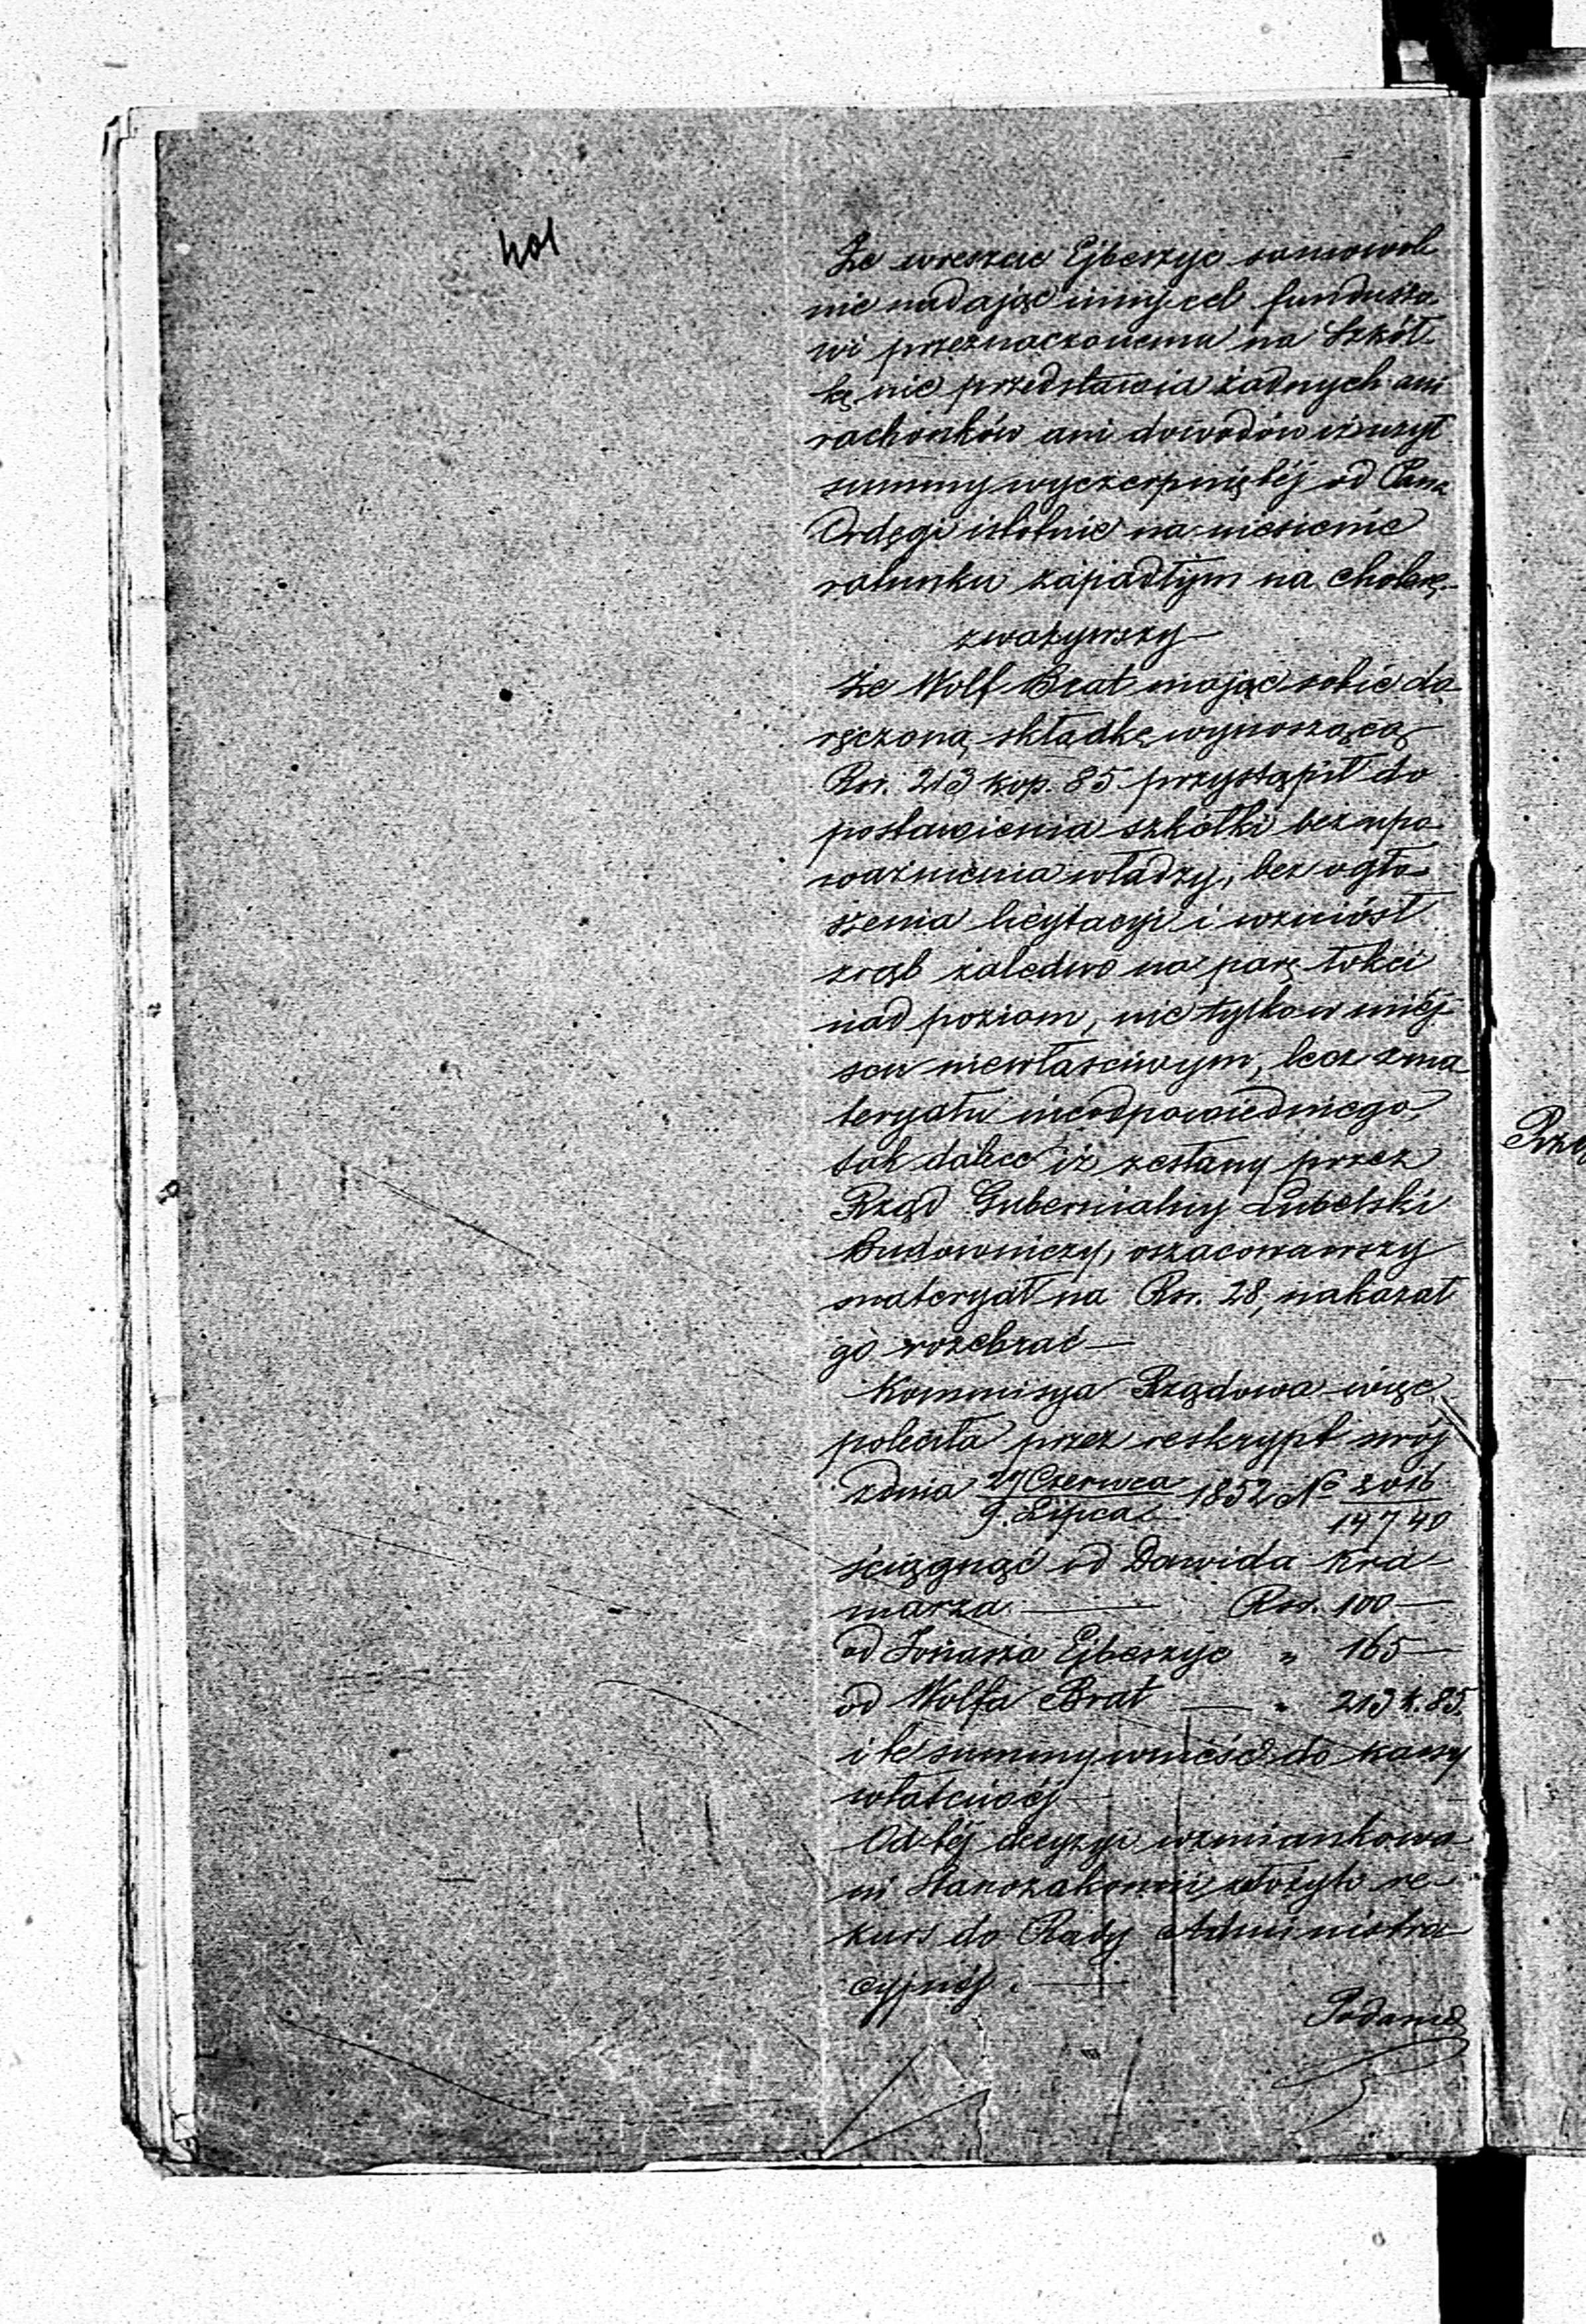 401
Że wreszcie Ejbeszyc samowol
nie nadając inny cel fundusso
wi przeznaczonemu na Szkół
kę nie przedstawia żadnych ani
rachónków ani dowodów iż użył
summy wyczerpniętéj od Pana
Ordęgi istotnie na niesienie
ratunku zapadłym na cholerę
zważywszy
że Wolf Brat mając sobie do
ręczoną składkę wynoszącą
Rsr. 213 kop. 85 przystąpił do
postawienia szkółki bez upo
ważnienia władzy, bez ogło
szenia licytacyi i wzniósł
zrąb zaledwo na parę łokci
nad poziom, nie tylko w miéj
scu niewłaściwym, lecz z ma
teryału nieodpowiedniego
tak dalece iż zesłany przez
Rząd Gubernialny Lubelski
Budowniczy, oszacowawszy
materyał na Rsr. 28, nakazał
go rozebrać —
Kommisya Rządowa więc
poleciła przez reskrypt swój
z dnia 27 Czerwca / 9. Lipca 1852 No 2016 / 14740
ściągnąć od Dawida Kra
marza — Rsr. 100 —
od Jonasza Ejbeszyc " 165 —
od Wolfa Brat — " 213 k. 85.
i te summy wnieść do kassy
właściwéj —
Od téj decyzyi wzmiankowa
ni Starozakonni złożyli re
kurs do Rady Administra
cyjnéj. —
Podanie